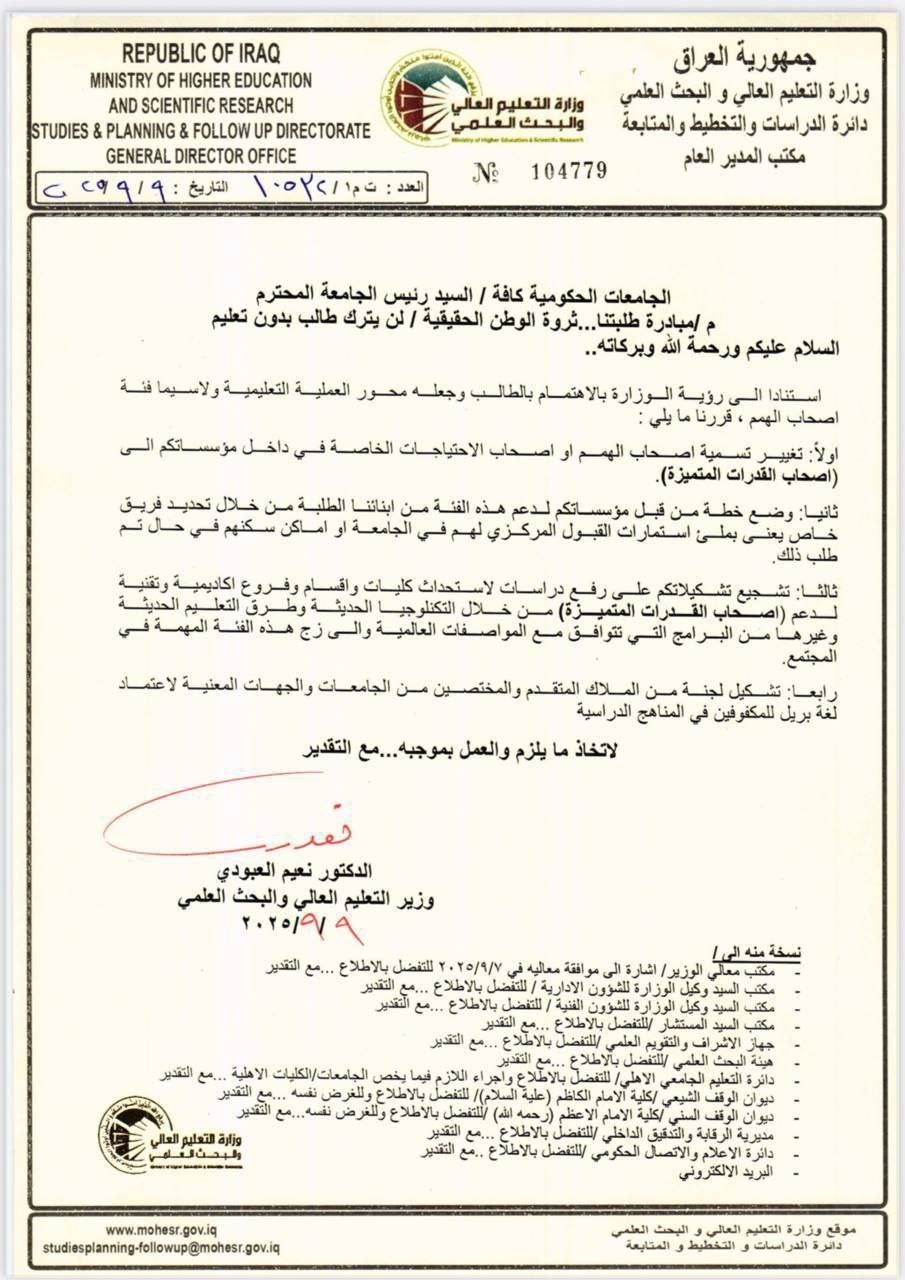 REPUBLIC OF IRAQ
MINISTRY OF HIGHER EDUCATION
AND SCIENTIFIC RESEARCH
STUDIES & PLANNING & FOLLOW UP DIRECTORATE
GENERAL DIRECTOR OFFICE
وزارة التعليم العالي
والبحث العلمي
Ministry of Higher Education & Scientific Research
№ 104779
جمهورية العراق
وزارة التعليم العالي و البحث العلمي
دائرة الدراسات والتخطيط والمتابعة
مكتب المدير العام
العدد : ت م١/ ١٠٥٢٢ التاريخ : ٩/ ٩/
الجامعات الحكومية كافة / السيد رئيس الجامعة المحترم
م /مبادرة طلبتنا...ثروة الوطن الحقيقية / لن يترك طالب بدون تعليم
السلام عليكم ورحمة الله وبركاته..
استنادا الى رؤية الوزارة بالاهتمام بالطالب وجعله محور العملية التعليمية ولاسيما فئة
اصحاب الهمم ، قررنا ما يلي :
اولاً: تغيير تسمية اصحاب الهمم او اصحاب الاحتياجات الخاصة في داخل مؤسساتكم الى
(اصحاب القدرات المتميزة).
ثانيا: وضع خطة من قبل مؤسساتكم لدعم هذه الفئة من ابنائنا الطلبة من خلال تحديد فريق
خاص يعنى بملئ استمارات القبول المركزي لهم في الجامعة او اماكن سكنهم في حال تم
طلب ذلك.
ثالثا: تشجيع تشكيلاتكم على رفع دراسات لاستحداث كليات واقسام وفروع اكاديمية وتقنية
لدعم (اصحاب القدرات المتميزة) من خلال التكنلوجيا الحديثة وطرق التعليم الحديثة
وغيرها من البرامج التي تتوافق مع المواصفات العالمية والى زج هذه الفئة المهمة في
المجتمع.
رابعا: تشكيل لجنة من الملاك المتقدم والمختصين من الجامعات والجهات المعنية لاعتماد
لغة بريل للمكفوفين في المناهج الدراسية
لاتخاذ ما يلزم والعمل بموجبه...مع التقدير
الدكتور نعيم العبودي
وزير التعليم العالي والبحث العلمي
٢٠٢٥/٩/٩
نسخة منه الى/
- مكتب معالي الوزير/ اشارة الى موافقة معاليه في ٢٠٢٥/٩/٧ للتفضل بالاطلاع ...مع التقدير
- مكتب السيد وكيل الوزارة للشؤون الادارية / للتفضل بالاطلاع ...مع التقدير
- مكتب السيد وكيل الوزارة للشؤون الفنية / للتفضل بالاطلاع ...مع التقدير
- مكتب السيد المستشار /للتفضل بالاطلاع ...مع التقدير
- جهاز الاشراف والتقويم العلمي /للتفضل بالاطلاع ...مع التقدير
- هيئة البحث العلمي /للتفضل بالاطلاع ...مع التقدير
- دائرة التعليم الجامعي الاهلي/ للتفضل بالاطلاع واجراء اللازم فيما يخص الجامعات/الكليات الاهلية ...مع التقدير
- ديوان الوقف الشيعي /كلية الامام الكاظم (علية السلام)/ للتفضل بالاطلاع وللغرض نفسه ...مع التقدير
- ديوان الوقف السني /كلية الامام الاعظم (رحمه الله) /للتفضل بالاطلاع وللغرض نفسه...مع التقدير
- مديرية الرقابة والتدقيق الداخلي /للتفضل بالاطلاع ...مع التقدير
- دائرة الاعلام والاتصال الحكومي /للتفضل بالاطلاع ..مع التقدير
- البريد الالكتروني
وزارة التعليم العالي
والبحث العلمي
Ministry of Higher Education & Scientific Research
www.mohesr.gov.iq
studiesplanning-followup@mohesr.gov.iq
موقع وزارة التعليم العالي و البحث العلمي
دائرة الدراسات و التخطيط و المتابعة